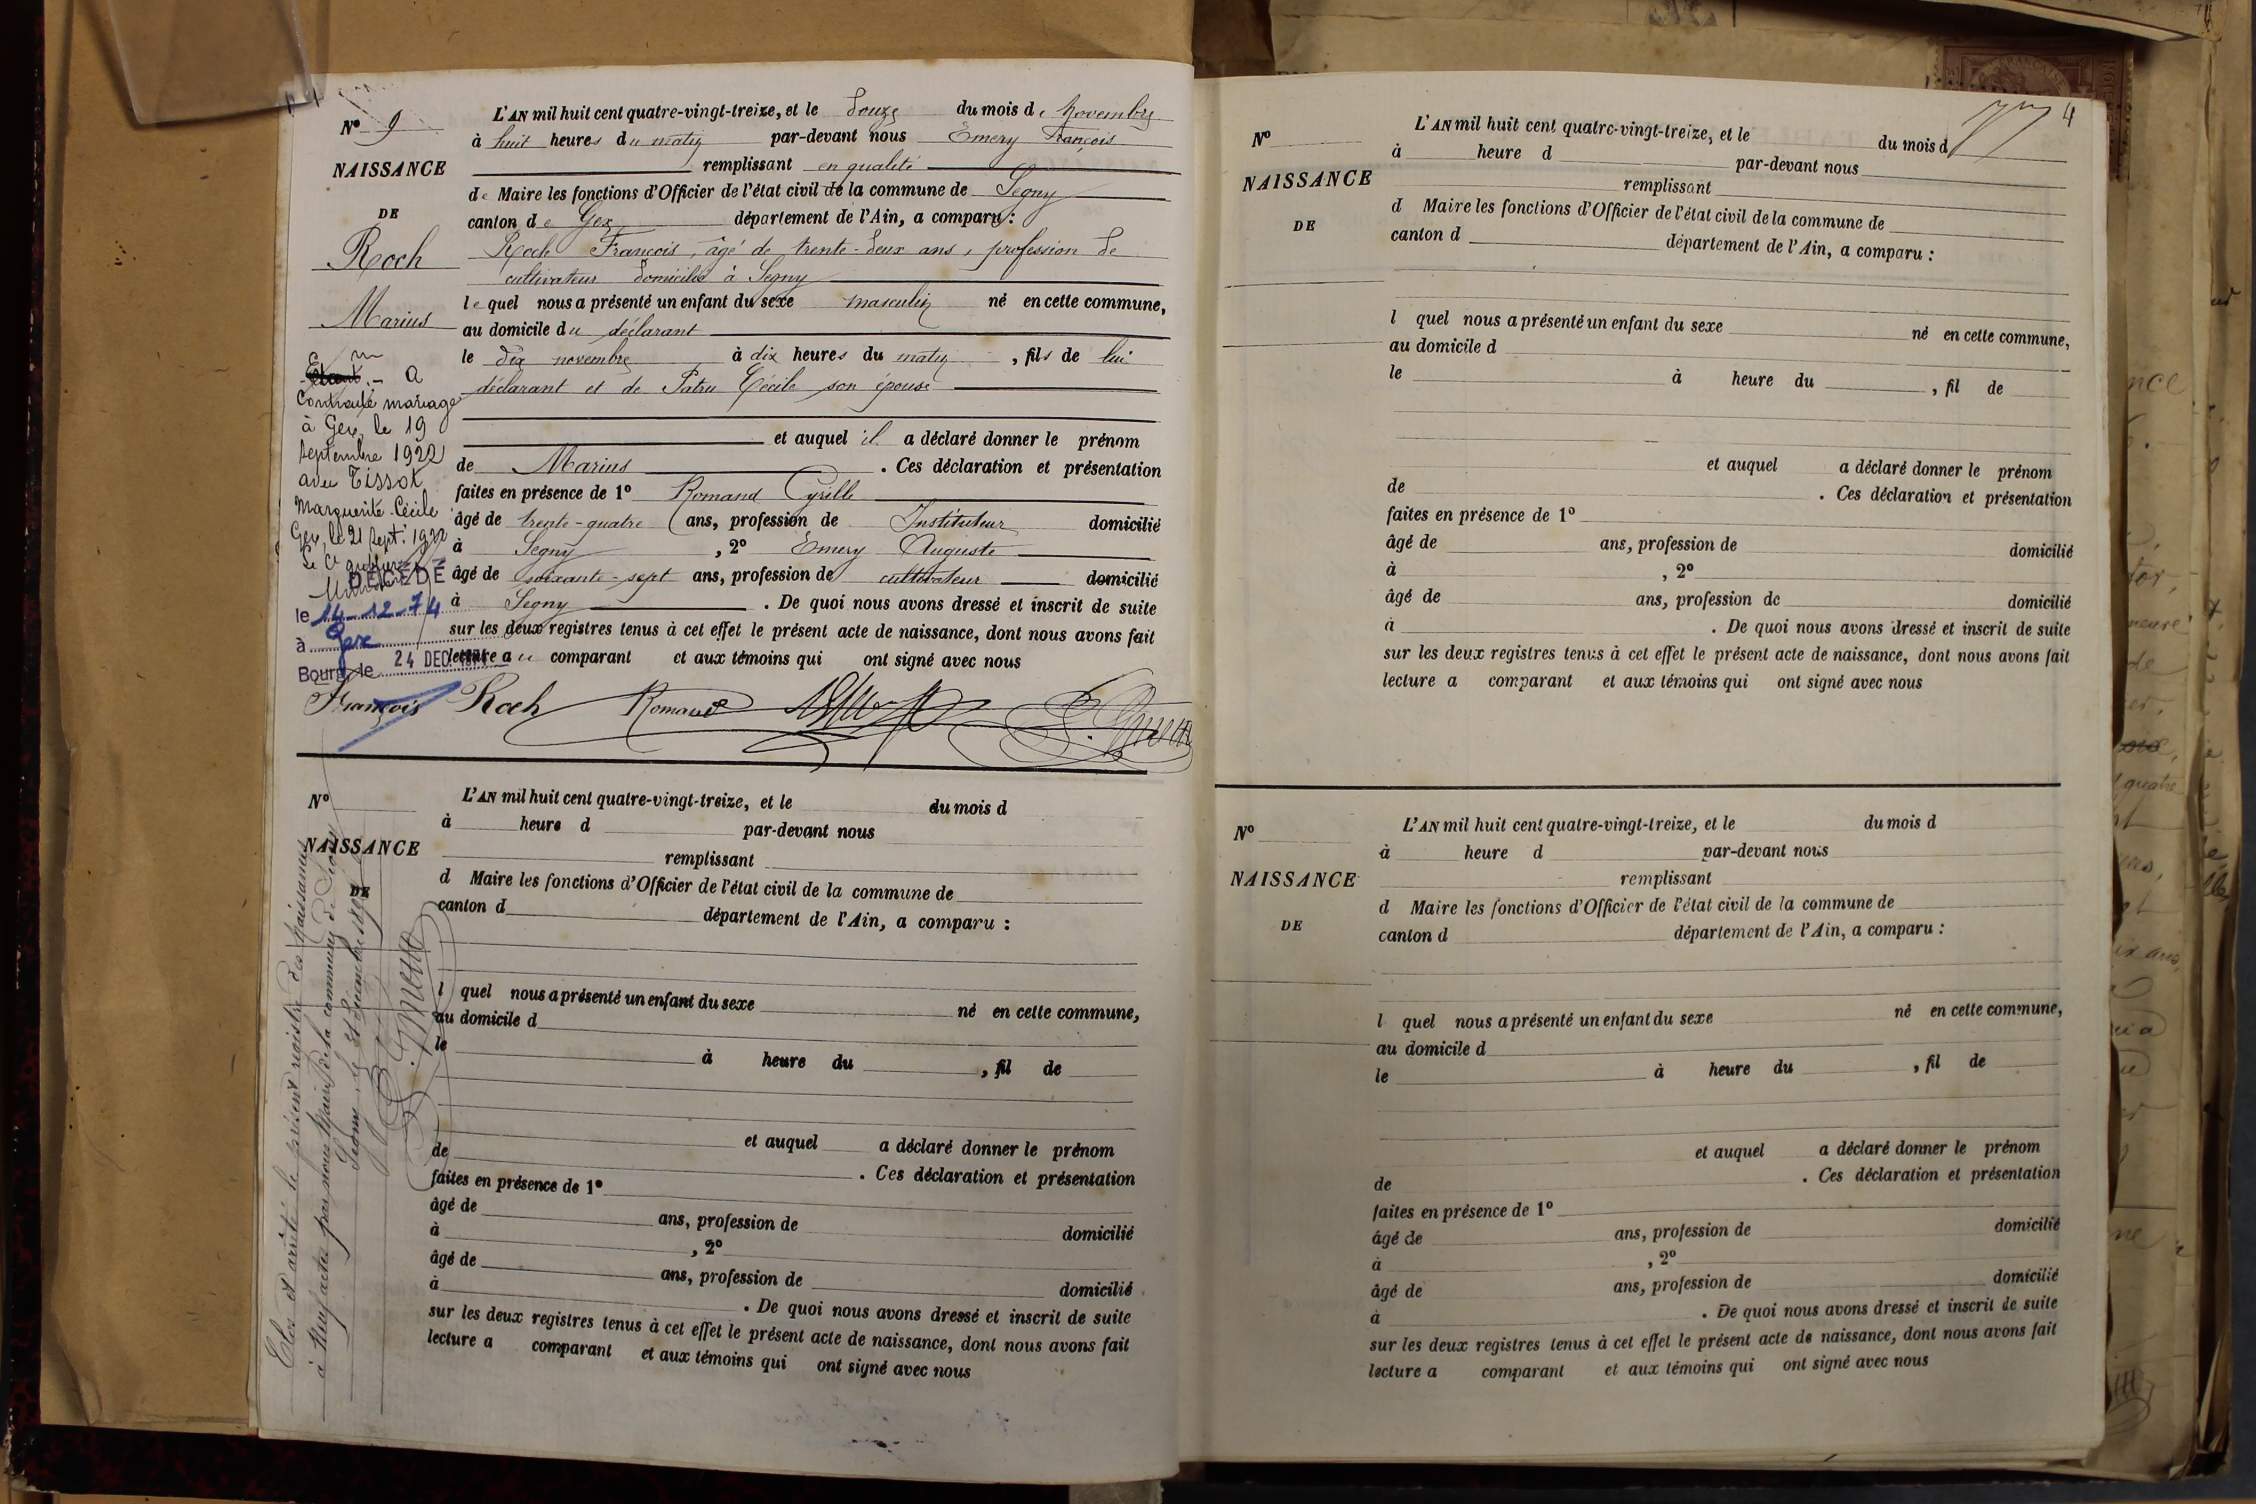 N° 9
NAISSANCE
DE
Roch
Marius
L'AN mil huit cent quatre-vingt-treize, et le douze du mois de Novembre
à huit heures du matin par-devant nous Emery François
remplissant en qualité
de Maire les fonctions d'Officier de l'état civil de la commune de Segny
canton de Gex département de l'Ain, a comparu :
Roch François, âgé de trente-deux ans, profession de
cultivateur domicilié à Segny
lequel nous a présenté un enfant du sexe masculin né en cette commune,
au domicile du déclarant
le dix novembre à dix heures du matin, fils de lui
déclarant et de Patru Cécile son épouse
et auquel il a déclaré donner le prénom
de Marius. Ces déclaration et présentation
faites en présence de 1° Romand Cyrille
âgé de trente-quatre ans, profession de Instituteur domicilié
à Segny, 2° Emery Auguste
âgé de soixante-sept ans, profession de cultivateur domicilié
à Segny. De quoi nous avons dressé et inscrit de suite
sur les deux registres tenus à cet effet le présent acte de naissance, dont nous avons fait
lecture au comparant et aux témoins qui ont signé avec nous
François Roch Romand
a
contracté mariage
à Gex, le 19
septembre 1922
avec Tissot
Marguerite-Cécile
Gex, le 21 Sept. 1922
Le
DÉCÉDÉ
le 14-12-74
à Gex
Bourg, le 24 DEC.
N°
NAISSANCE
DE
L'AN mil huit cent quatre-vingt-treize, et le du mois d
à heure d par-devant nous
remplissant
d Maire les fonctions d'Officier de l'état civil de la commune de
canton d département de l'Ain, a comparu :
l quel nous a présenté un enfant du sexe né en cette commune,
au domicile d
le à heure du , fil de
et auquel a déclaré donner le prénom
de . Ces déclaration et présentation
faites en présence de 1°
âgé de ans, profession de domicilié
à , 2°
âgé de ans, profession de domicilié
à . De quoi nous avons dressé et inscrit de suite
sur les deux registres tenus à cet effet le présent acte de naissance, dont nous avons fait
lecture a comparant et aux témoins qui ont signé avec nous
Clos et arrêté le présent registre des naissances
à neuf actes par nous Maire de la commune de Segny
Segny le 31 décembre
4
N°
NAISSANCE
DE
L'AN mil huit cent quatre-vingt-treize, et le du mois d
à heure d par-devant nous
remplissant
d Maire les fonctions d'Officier de l'état civil de la commune de
canton d département de l'Ain, a comparu :
l quel nous a présenté un enfant du sexe né en cette commune,
au domicile d
le à heure du , fil de
et auquel a déclaré donner le prénom
de . Ces déclaration et présentation
faites en présence de 1°
âgé de ans, profession de domicilié
à , 2°
âgé de ans, profession de domicilié
à . De quoi nous avons dressé et inscrit de suite
sur les deux registres tenus à cet effet le présent acte de naissance, dont nous avons fait
lecture a comparant et aux témoins qui ont signé avec nous
N°
NAISSANCE
DE
L'AN mil huit cent quatre-vingt-treize, et le du mois d
à heure d par-devant nous
remplissant
d Maire les fonctions d'Officier de l'état civil de la commune de
canton d département de l'Ain, a comparu :
l quel nous a présenté un enfant du sexe né en cette commune,
au domicile d
le à heure du , fil de
et auquel a déclaré donner le prénom
de . Ces déclaration et présentation
faites en présence de 1°
âgé de ans, profession de domicilié
à , 2°
âgé de ans, profession de domicilié
à . De quoi nous avons dressé et inscrit de suite
sur les deux registres tenus à cet effet le présent acte de naissance, dont nous avons fait
lecture a comparant et aux témoins qui ont signé avec nous